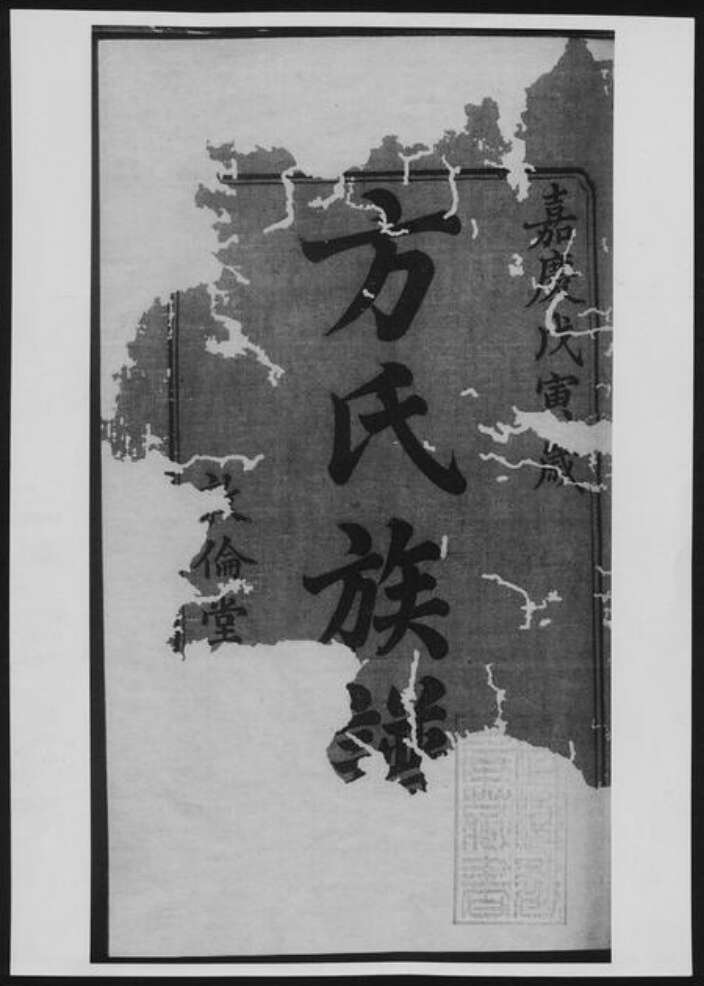 嘉慶戊寅歲
方氏族譜
敦倫堂